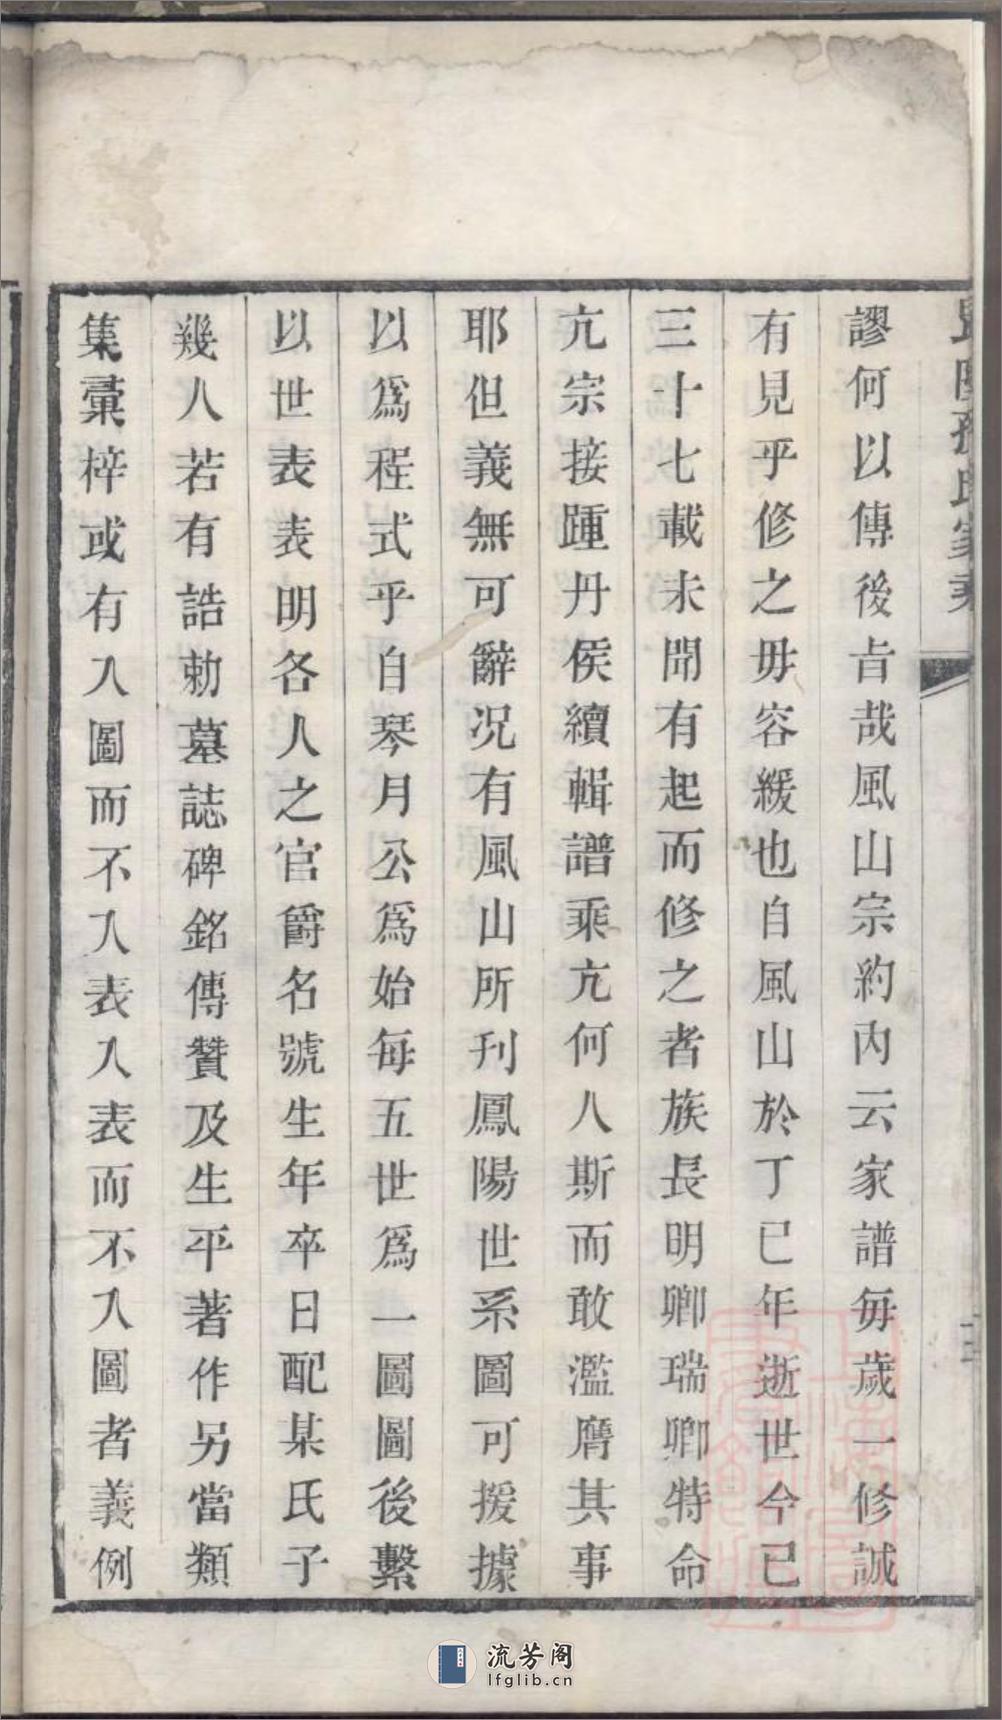 謬何以傳後㫖哉風山宗約內云家譜毎歲一修誠
有見乎修之毋容緩也自風山於丁巳年逝世今已
三十七載未聞有起而修之者族長明卿瑞卿特命
亢宗接踵丹侯續輯譜乘亢何人斯而敢濫膺其事
耶但義無可辭况有風山所刊鳳陽世系圖可援據
以爲程式乎自琴月公爲始每五世爲一圖圖後繫
以世表表明各人之官爵名號生年卒日配某氏子
幾人若有誥勅墓誌碑銘傳贊及生平著作另當類
集彙梓或有入圖而不入表入表而不入圖者義例
孫氏家乘
流芳阁
lfglib.cn